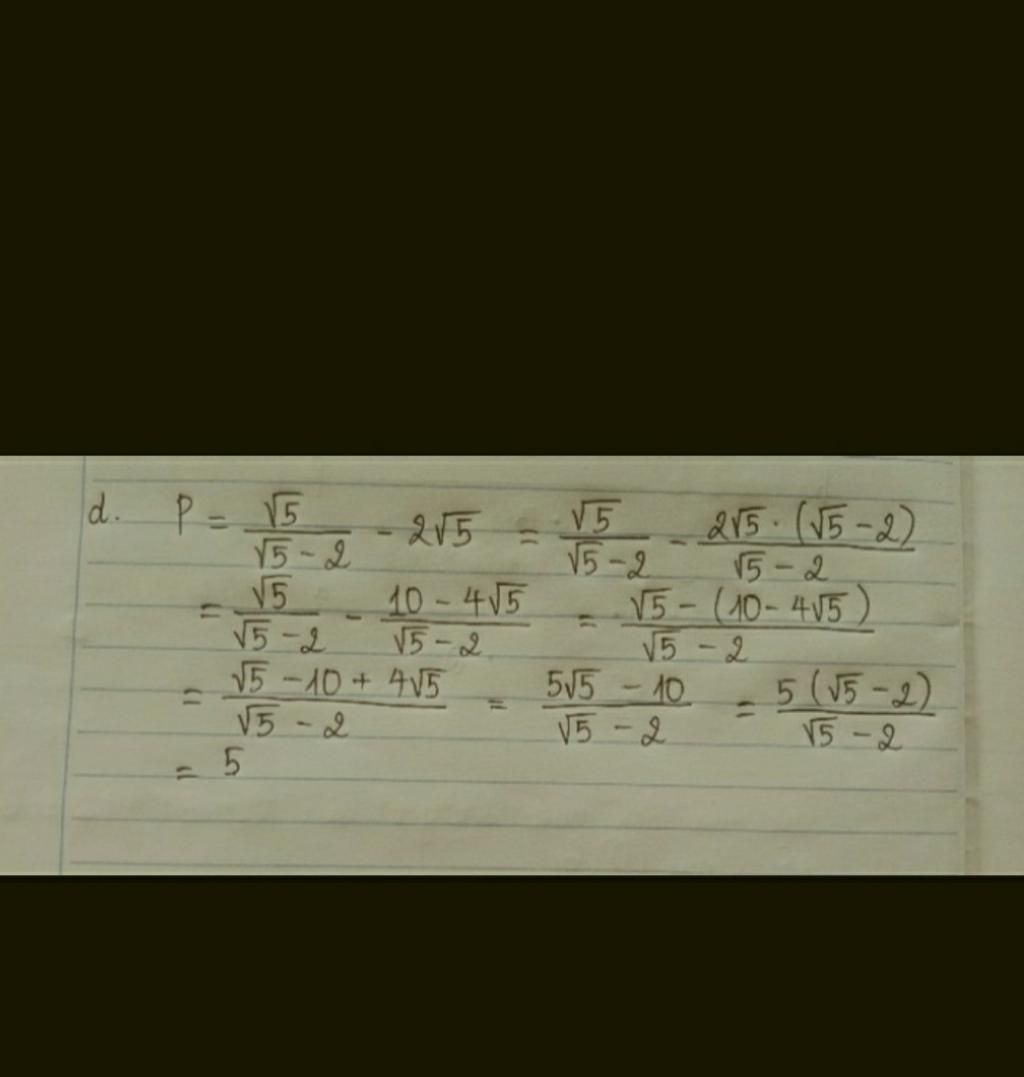 d. P = √5/(√5 - 2) - 2√5 = √5/(√5 - 2) - 2√5 · (√5 - 2)/(√5 - 2)
= √5/(√5 - 2) - (10 - 4√5)/(√5 - 2) = (√5 - (10 - 4√5))/(√5 - 2)
= (√5 - 10 + 4√5)/(√5 - 2) = (5√5 - 10)/(√5 - 2) = 5(√5 - 2)/(√5 - 2)
= 5